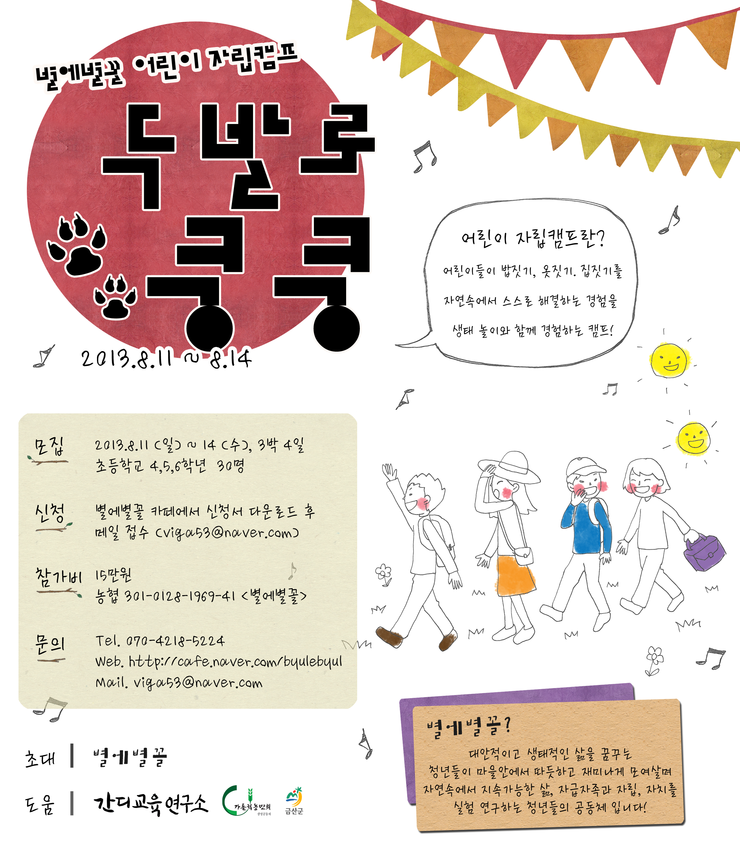 별에별꼴 어린이 자립캠프
두발로
쿵쿵
2013.8.11 ~ 8.14
어린이 자립캠프란?
어린이들이 밥짓기, 옷짓기. 집짓기를
자연속에서 스스로 해결하는 경험을
생태 놀이와 함께 경험하는 캠프!
모집
2013.8.11 (일) ~ 14 (수), 3박 4일
초등학교 4,5,6학년 30명
신청
별에별꼴 카페에서 신청서 다운로드 후
메일 접수 (viga53@naver.com)
참가비
15만원
농협 301-0128-1969-41 <별에별꼴>
문의
Tel. 070-4218-5224
Web. http://cafe.naver.com/byulebyul
Mail. viga53@naver.com
초대 | 별에별꼴
도움 | 간디교육연구소
금산군
별에별꼴?
대안적이고 생태적인 삶을 꿈꾸는
청년들이 마을안에서 따뜻하고 재미나게 모여살며
자연속에서 지속가능한 삶, 자급자족과 자립, 자치를
실험 연구하는 청년들의 공동체 입니다!